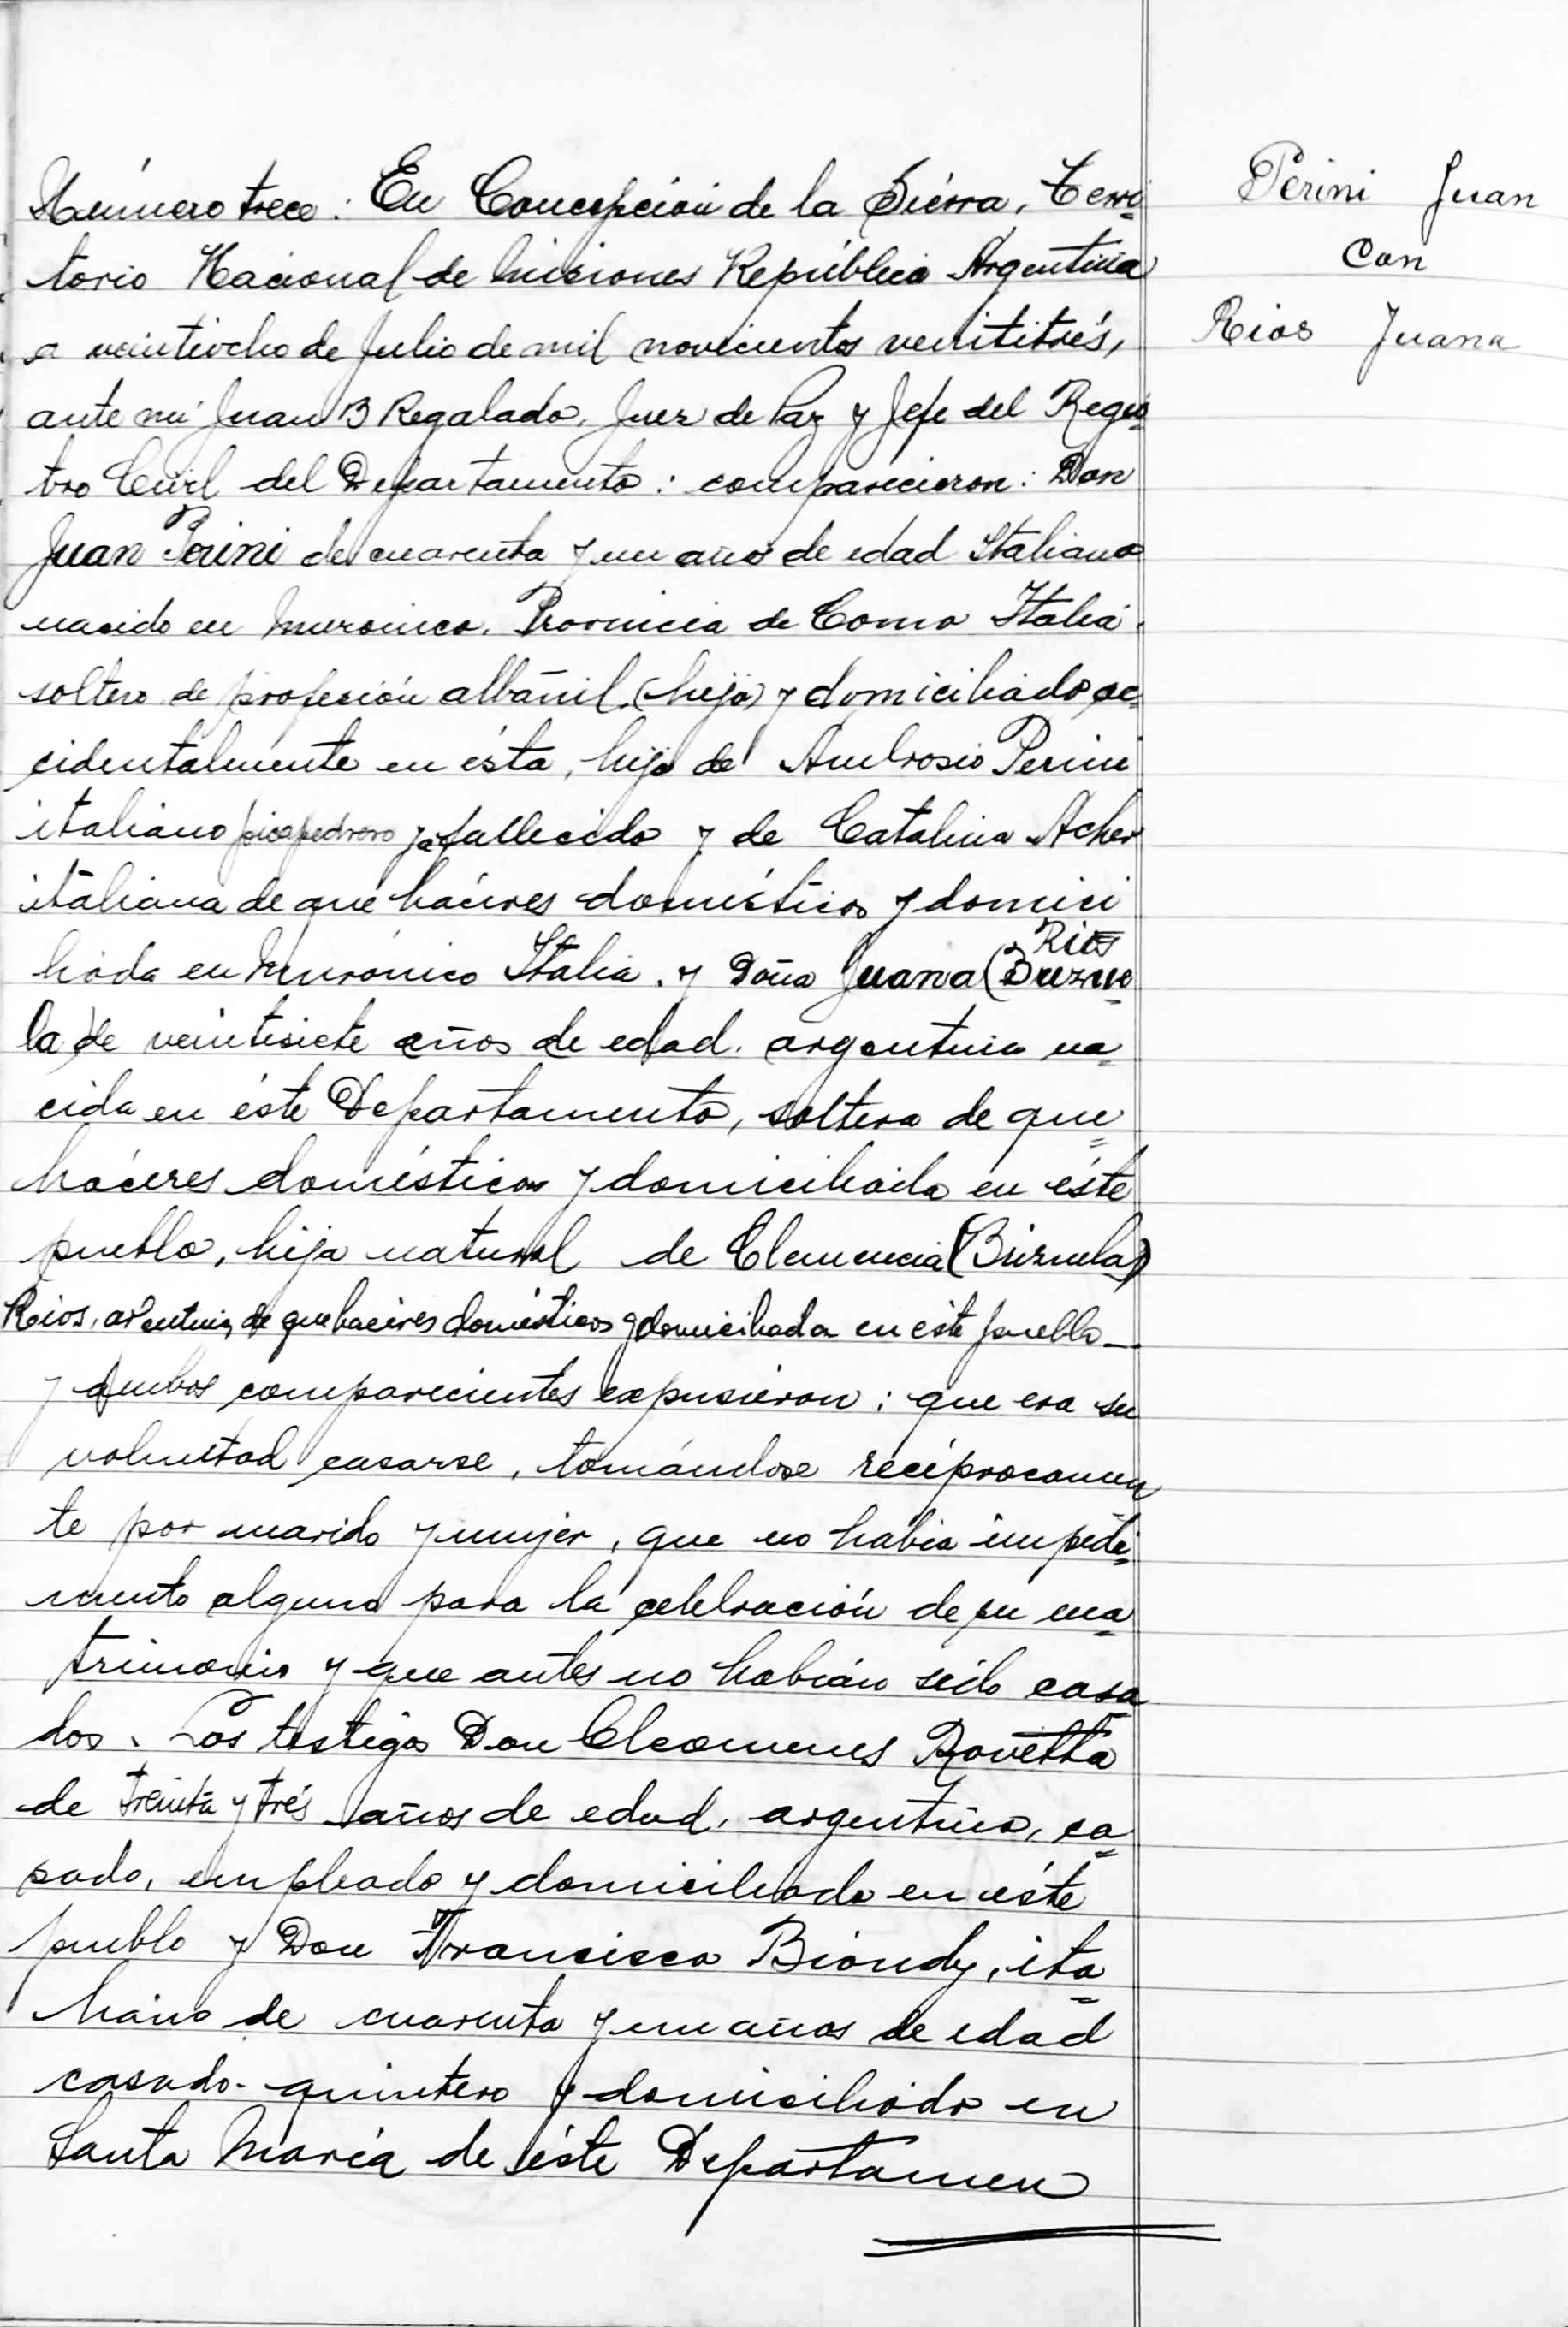 Número trece: En Concepción de la Sierra, Terri-
Perini Juan
torio Nacional de Misiones República Argentina
con
a veintiocho de Julio de mil novecientos veintitrés,
Rios Juana
ante mi Juan B Regalado, Juez de Paz y Jefe del Regis-
tro Civil del Departamento: comparecieron: Don
Juan Perini de cuarenta y un años de edad Italiano
nacido en Muronico. Provincia de Como Italia.
soltero de profesión albañil (hijo) y domiciliado ac-
cidentalmente en ésta, hijo de Ambrosio Perini
italiano picapedrero ya fallecido y de Catalina Acher
italiana de que haceres domésticos y domici
liada en Muronico Italia. y Doña Juana (Buzue-
Rios
la) de veintisiete años de edad. argentina na-
cida en éste Departamento, soltera de que-
haceres domésticos y domiciliada en éste
pueblo, hija natural de Clemencia (Búzuela)
Rios, arentina, de quehaceres domésticos y domiciliada en este pueblo—
y ambos comparecientes expusieron: que era su
voluntad casarse, tomándose recíprocamen
te por marido y mujer, que no había impedi-
mento alguno para la celebración de su ma-
trimonio y que antes no habían sido casa-
dos. Los testigos Don Cleomenes Rovetta
de treinta y trés años de edad, argentino, ca-
sado, empleado y domiciliado en éste
pueblo y Don Francisco Biondy, ita-
liano de cuarenta y un años de edad
casado. quintero y domiciliado en
Santa María de éste Departamen